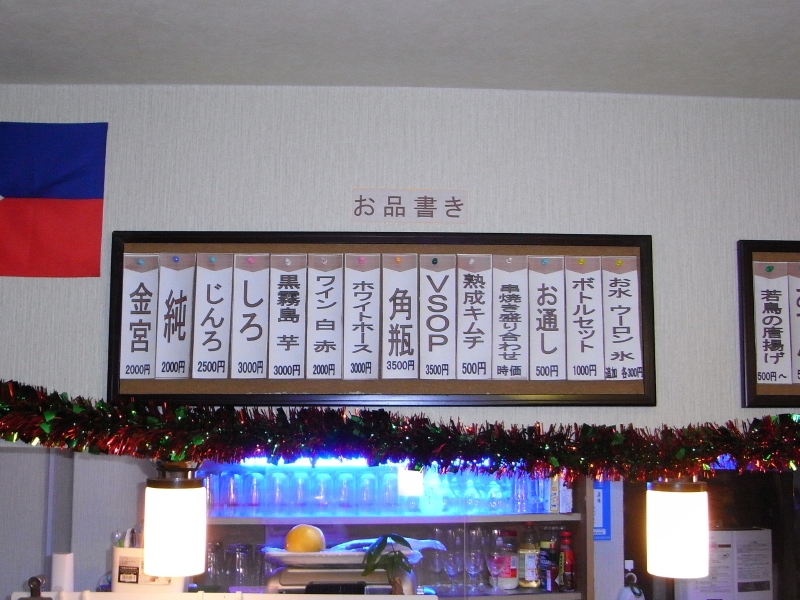 お品書き
金宮 2000円
純 2000円
じんろ 2500円
しろ 3000円
黒霧島 芋 3000円
ワイン 白 赤 2000円
ホワイトホース 3000円
角瓶 3500円
VSOP 3500円
熟成キムチ 500円
串焼き盛り合わせ 時価
お通し 500円
ボトルセット 1000円
お水 ウーロン 氷 追加 各300円
若鳥の唐揚げ 500円～